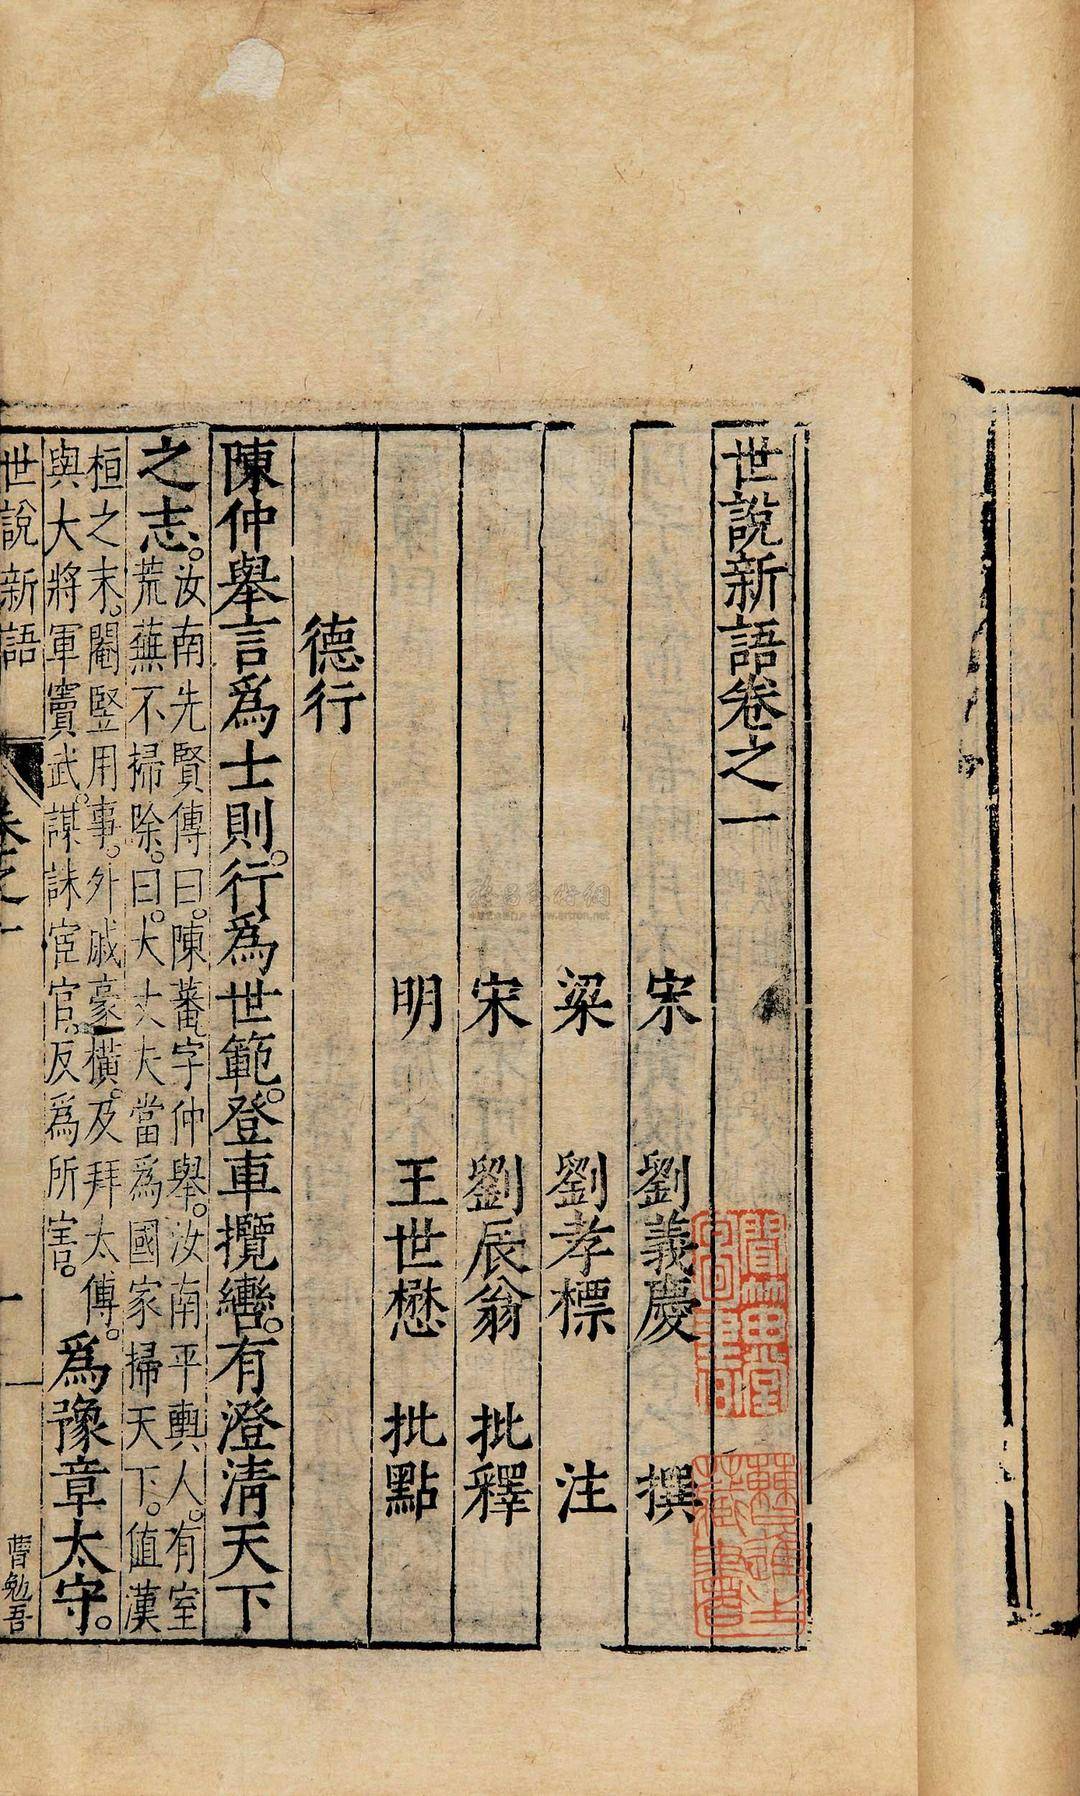 世說新語卷之一
宋　劉義慶　撰
梁　劉孝標　注
宋　劉辰翁　批釋
明　王世懋　批點
德行
陳仲舉言爲士則。行爲世範。登車攬轡。有澄清天下
之志。
汝南先賢傳曰。陳蕃字仲舉。汝南平輿人。有室
荒蕪不掃除。曰。大丈夫當爲國家掃天下。值漢
桓之末。閹豎用事。外戚豪橫。及拜太傅。
與大將軍竇武。謀誅宦官。反爲所害。
爲豫章太守。
世說新語
卷之一
一
曹勉吾
藏書
www.artron.net